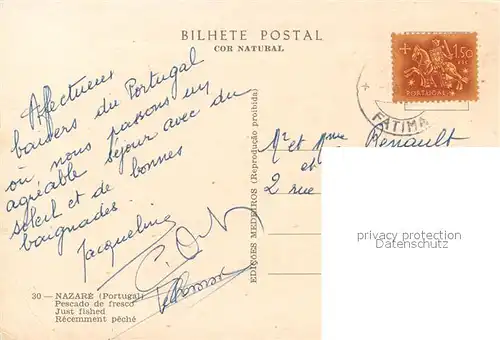 BILHETE POSTAL
COR NATURAL
1,50
PORTUGAL
FATIMA
Affectueux
baisers du Portugal
où nous passons un
agréable séjour avec du
soleil et de bonnes
baignades.
Jacqueline
Mr et Mme Renault
et
2 rue
EDIÇÕES MEDEIROS (Reprodução proibida)
privacy protection
Datenschutz
30 — NAZARÉ (Portugal)
Pescado de fresco
Just fished
Récemment pêché